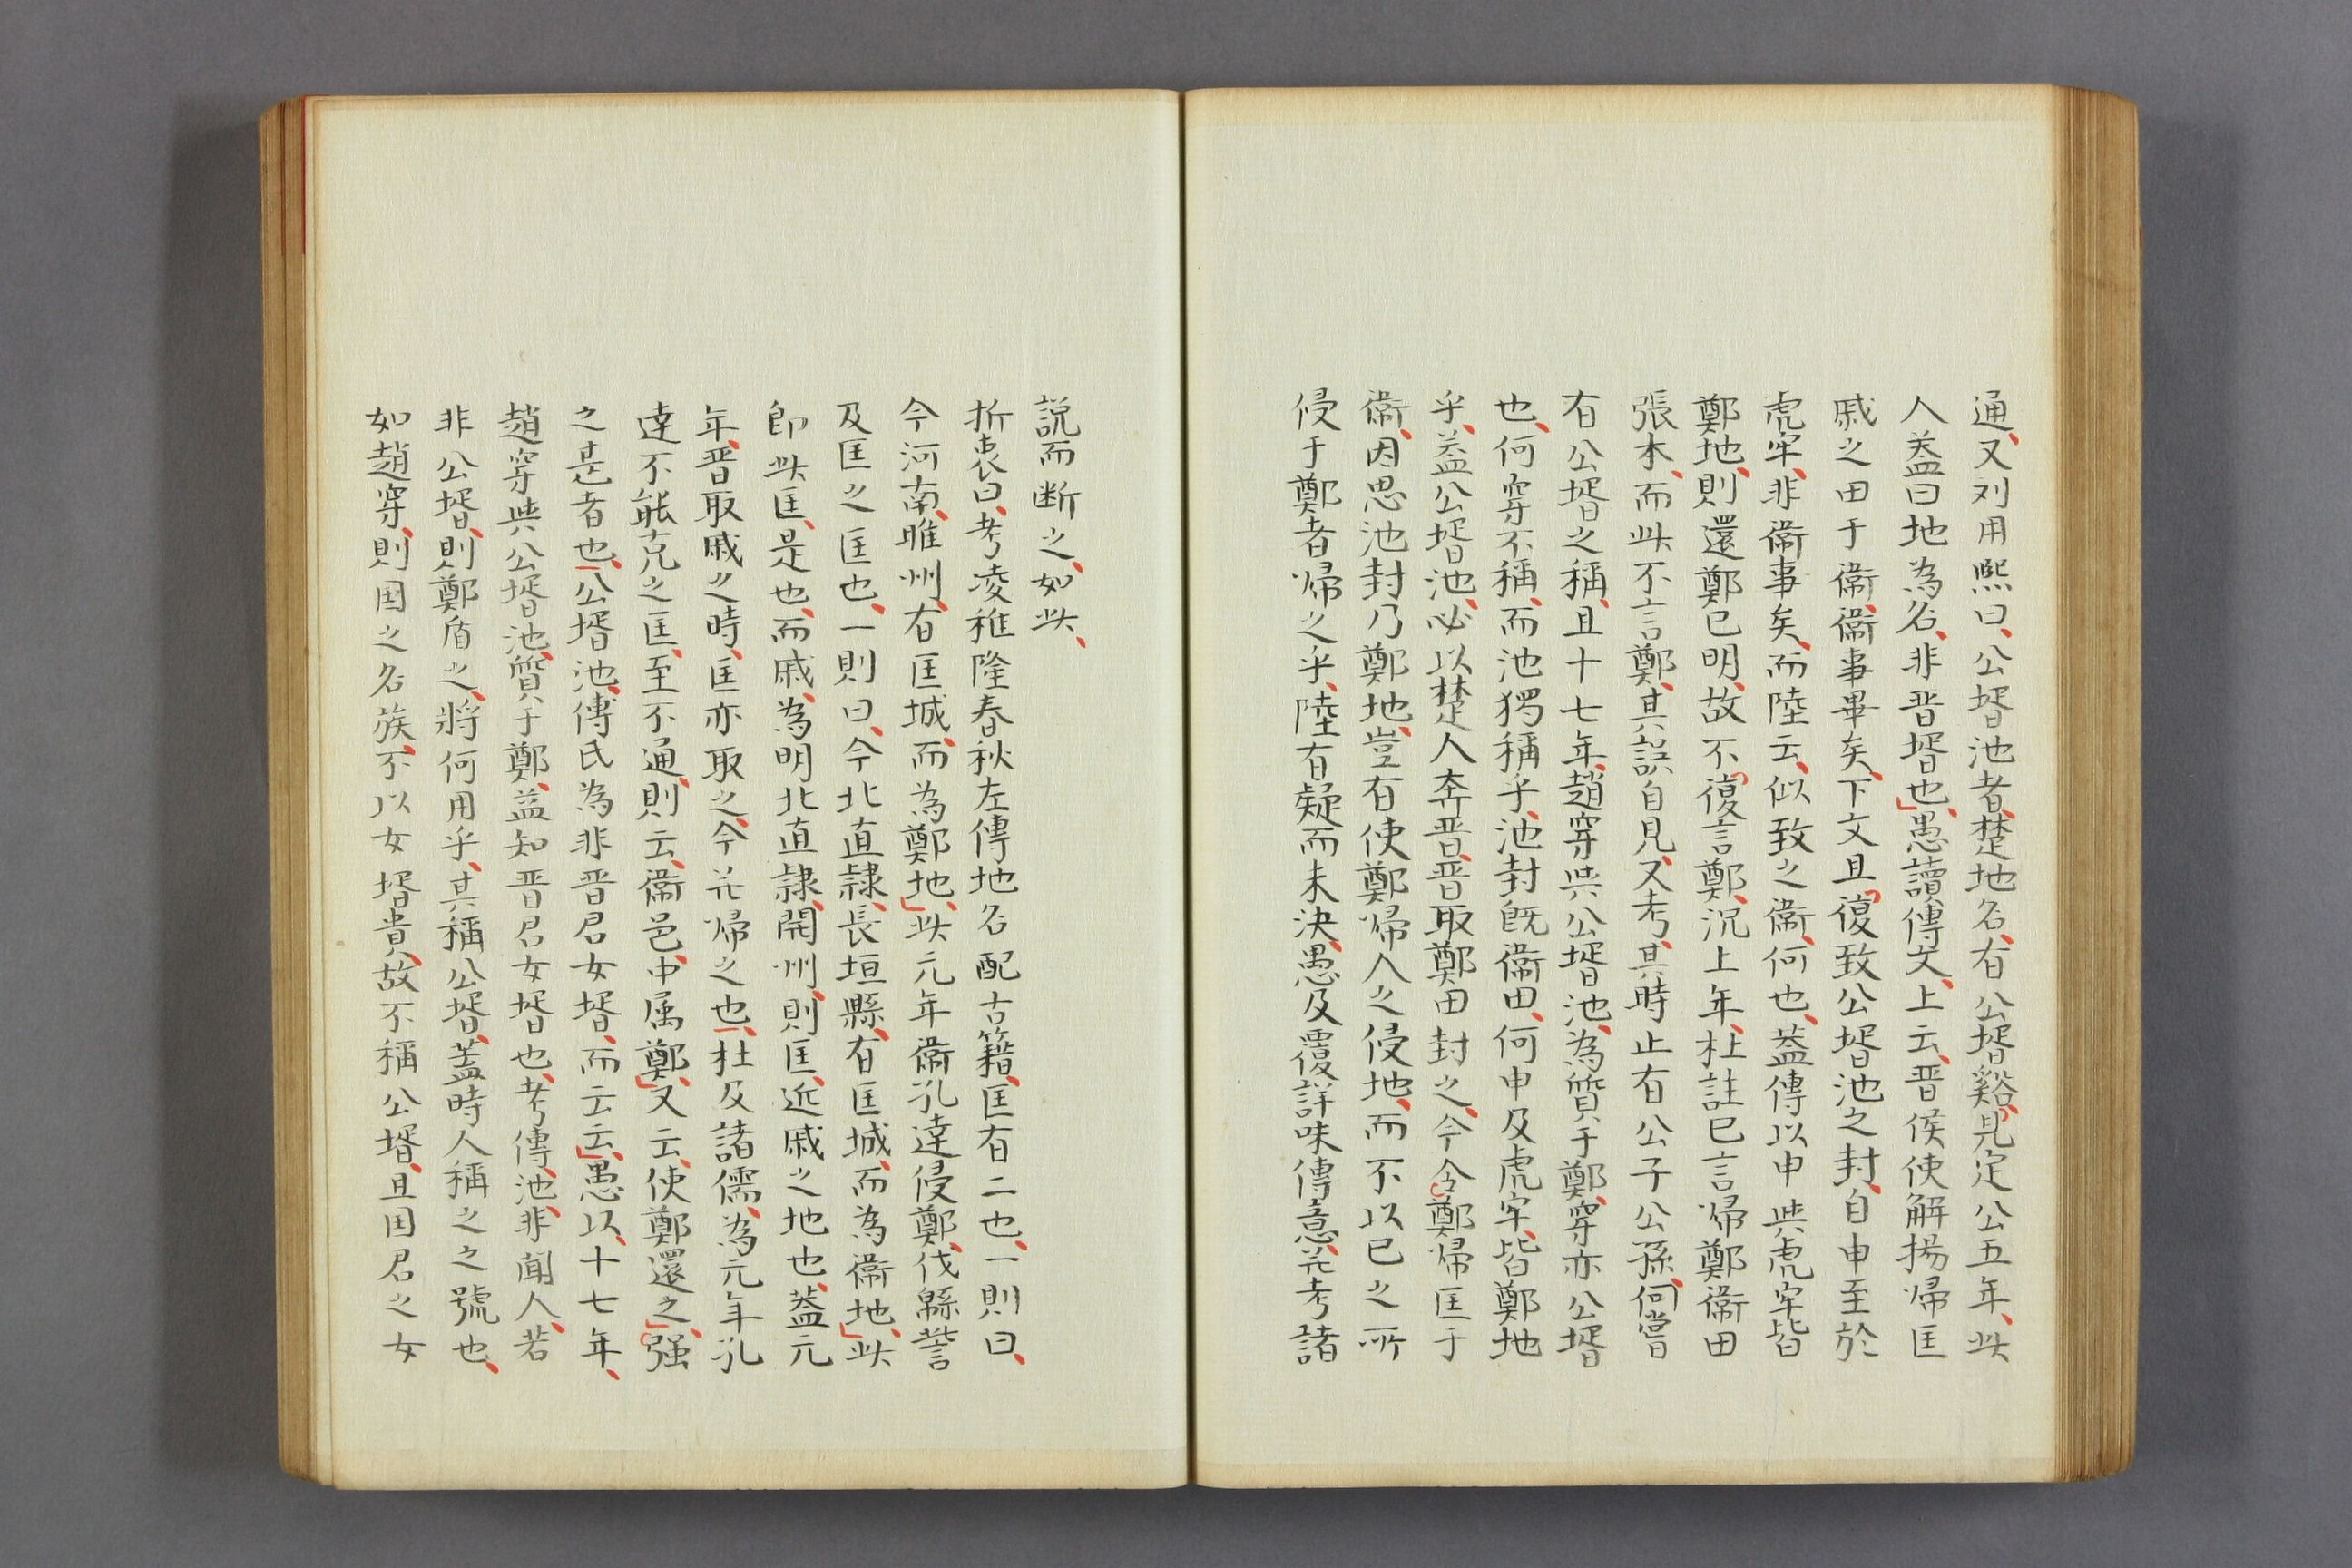 通、又刘用熙曰、公壻池者、楚地名、有公壻谿、見定公五年、此
人蓋曰地為名、非晋壻也、愚讀傳文、上云、晋侯使解揚帰匡
戚之田于衞、衞事畢矣、下文且復致公壻池之封、自申至於
虎牢、非衞事矣、而陸云、似致之衞、何也、蓋傳以申與虎牢皆
鄭地、則還鄭已明、故不復言鄭、况上年、杜註已言帰鄭衞田
張本、而此不言鄭、其誤自見、又考、其時止有公子公孫、何嘗
有公壻之稱、且十七年、趙穿與公壻池、為質于鄭、穿亦公壻
也、何穿不稱、而池獨稱乎、池封既衞田、何申及虎牢、皆鄭地
乎、蓋公壻池、必以楚人奔晋、晋取鄭田封之、今令鄭帰匡于
衞、因思池封乃鄭地、豈有使鄭帰人之侵地、而不以已之所
侵于鄭者帰之乎、陸有疑而未決、愚及覆詳味傳意、并考諸
說而断之、如此、
折衷曰、考凌稚隆春秋左傳地名配古籍、匡有二也、一則曰、
今河南、睢州、有匡城、而為鄭地、此元年衞孔達侵鄭、伐緜訾
及匡之匡也、一則曰、今北直隷、長垣縣、有匡城、而為衞地、此
即此匡、是也、而戚、為明北直隷、開州、則匡、近戚之地也、蓋元
年、晋取戚之時、匡亦取之、今并帰之也、杜及諸儒、為元年孔
達不能克之匡、至不通、則云、衞邑、中属鄭、又云、使鄭還之、强
之是者也、公壻池、傳氏為非晋君女壻、而云云、愚以、十七年、
趙穿與公壻池、質于鄭、益知晋君女壻也、考傳、池、非聞人、若
非公壻、則鄭盾之、將何用乎、其稱公壻、蓋時人稱之之號也、
如趙穿、則国之名族、不以女壻貴、故不稱公壻、且国君之女